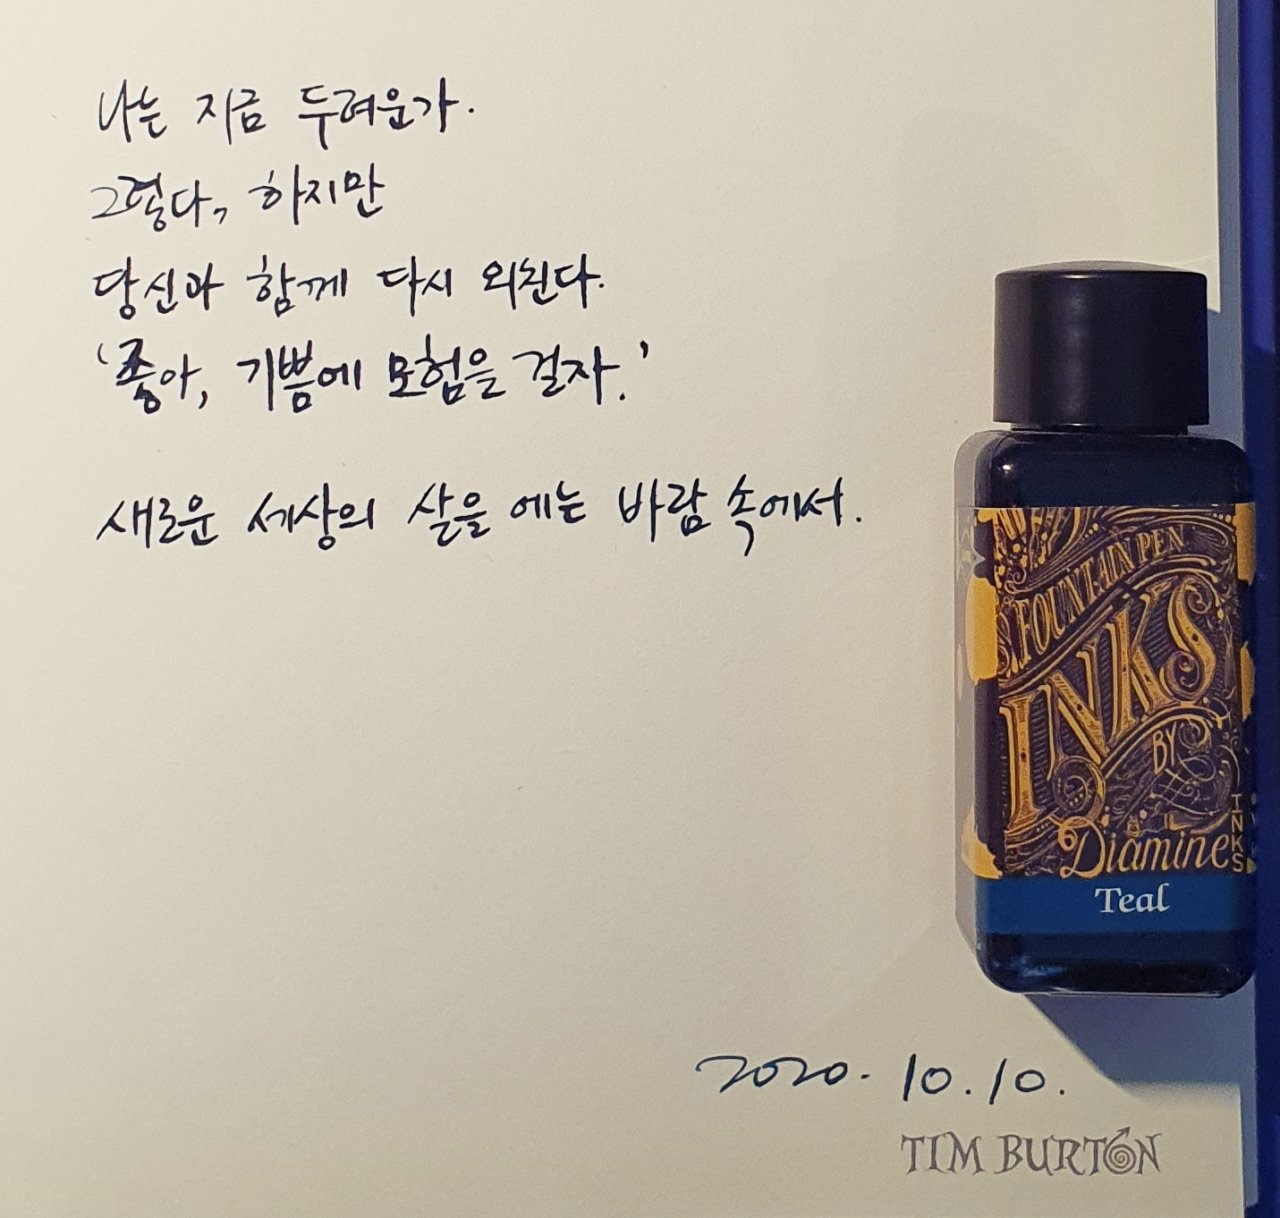 나는 지금 두려운가.
그렇다, 하지만
당신과 함께 다시 외친다.
'좋아, 기쁨에 모험을 걸자.'
새로운 세상의 살을 에는 바람 속에서.
FOUNTAIN PEN
INKS
BY
Diamine
INKS
Teal
2020. 10. 10.
TIM BURTON